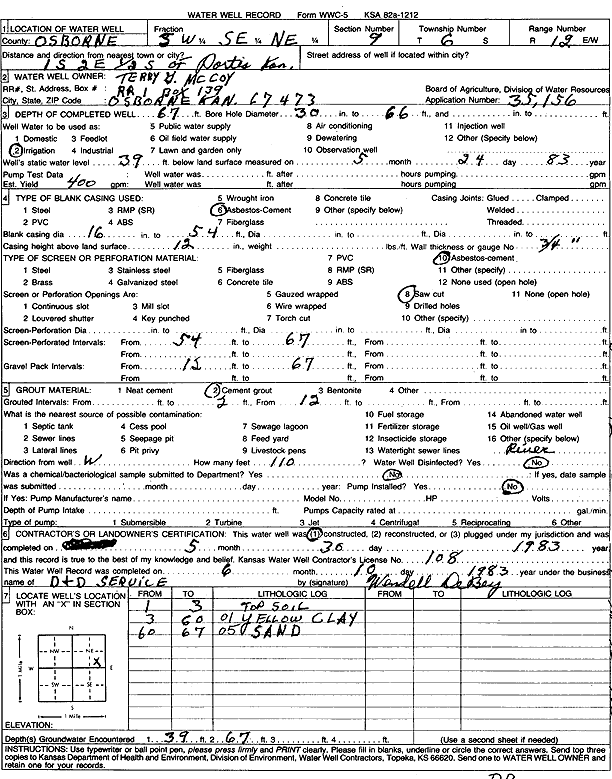 WATER WELL RECORD Form WWC-5 KSA 82a-1212
1 LOCATION OF WATER WELL Fraction Section Number Township Number Range Number
County: OSBORNE SW ¼ SE ¼ NE ¼ 9 T 6 S R 12 E/W
Distance and direction from nearest town or city? Street address of well if located within city?
1S 2E 1/2S of Portis Kan.
2 WATER WELL OWNER: TERRY G. MCCOY
RR#, St. Address, Box # : RR 1 Box 139 Board of Agriculture, Division of Water Resources
City, State, ZIP Code : OSBORNE KAN. 67473 Application Number: 35,156
3 DEPTH OF COMPLETED WELL 67 ft. Bore Hole Diameter 30 in. to 66 ft., and in. to ft.
Well Water to be used as: 5 Public water supply 8 Air conditioning 11 Injection well
1 Domestic 3 Feedlot 6 Oil field water supply 9 Dewatering 12 Other (Specify below)
2 Irrigation 4 Industrial 7 Lawn and garden only 10 Observation well
Well's static water level 39 ft. below land surface measured on 5 month 24 day 83 year
Pump Test Data : Well water was ft. after hours pumping gpm
Est. Yield 400 gpm: Well water was ft. after hours pumping gpm
4 TYPE OF BLANK CASING USED: 5 Wrought iron 8 Concrete tile Casing Joints: Glued Clamped
1 Steel 3 RMP (SR) 6 Asbestos-Cement 9 Other (specify below) Welded
2 PVC 4 ABS 7 Fiberglass Threaded
Blank casing dia 16 in. to 54 ft., Dia in. to ft., Dia in. to ft.
Casing height above land surface 12 in., weight lbs./ft. Wall thickness or gauge No 3/4 "
TYPE OF SCREEN OR PERFORATION MATERIAL: 7 PVC 10 Asbestos-cement
1 Steel 3 Stainless steel 5 Fiberglass 8 RMP (SR) 11 Other (specify)
2 Brass 4 Galvanized steel 6 Concrete tile 9 ABS 12 None used (open hole)
Screen or Perforation Openings Are: 5 Gauzed wrapped 8 Saw cut 11 None (open hole)
1 Continuous slot 3 Mill slot 6 Wire wrapped 9 Drilled holes
2 Louvered shutter 4 Key punched 7 Torch cut 10 Other (specify)
Screen-Perforation Dia in. to ft., Dia in. to ft., Dia in. to ft.
Screen-Perforated Intervals: From 54 ft. to 67 ft., From ft. to ft.
From ft. to ft., From ft. to ft.
Gravel Pack Intervals: From 12 ft. to 67 ft., From ft. to ft.
From ft. to ft., From ft. to ft.
5 GROUT MATERIAL: 1 Neat cement 2 Cement grout 3 Bentonite 4 Other
Grouted Intervals: From ft. to 2 ft., From 12 ft. to ft., From ft. to ft.
What is the nearest source of possible contamination: 10 Fuel storage 14 Abandoned water well
1 Septic tank 4 Cess pool 7 Sewage lagoon 11 Fertilizer storage 15 Oil well/Gas well
2 Sewer lines 5 Seepage pit 8 Feed yard 12 Insecticide storage 16 Other (specify below)
3 Lateral lines 6 Pit privy 9 Livestock pens 13 Watertight sewer lines River
Direction from well W How many feet 110 ? Water Well Disinfected? Yes No
Was a chemical/bacteriological sample submitted to Department? Yes No If yes, date sample
was submitted month day year: Pump Installed? Yes No
If Yes: Pump Manufacturer's name Model No. HP Volts
Depth of Pump Intake ft. Pumps Capacity rated at gal./min.
Type of pump: 1 Submersible 2 Turbine 3 Jet 4 Centrifugal 5 Reciprocating 6 Other
6 CONTRACTOR'S OR LANDOWNER'S CERTIFICATION: This water well was (1) constructed, (2) reconstructed, or (3) plugged under my jurisdiction and was
completed on 5 month 30 day 1983 year
and this record is true to the best of my knowledge and belief. Kansas Water Well Contractor's License No. 108
This Water Well Record was completed on 6 month 10 day 1983 year under the business
name of D+D SERVICE by (signature) Wendell DeBey
7 LOCATE WELL'S LOCATION WITH AN "X" IN SECTION BOX: FROM TO LITHOLOGIC LOG FROM TO LITHOLOGIC LOG
1 3 TOP SOIL
3 60 01 YELLOW CLAY
60 67 05 SAND
N
NW NE
W X E
SW SE
S
1 Mile
1 Mile
ELEVATION:
Depth(s) Groundwater Encountered 1. 39 ft. 2. 67 ft. 3. ft. 4. ft. (Use a second sheet if needed)
INSTRUCTIONS: Use typewriter or ball point pen, please press firmly and PRINT clearly. Please fill in blanks, underline or circle the correct answers. Send top three
copies to Kansas Department of Health and Environment, Division of Environment, Water Well Contractors, Topeka, KS 66620. Send one to WATER WELL OWNER and
retain one for your records.